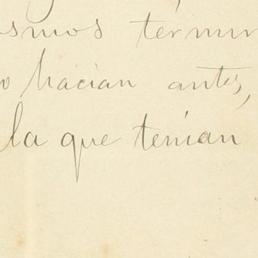 smos térmi
o hacian antes,
la que tenian